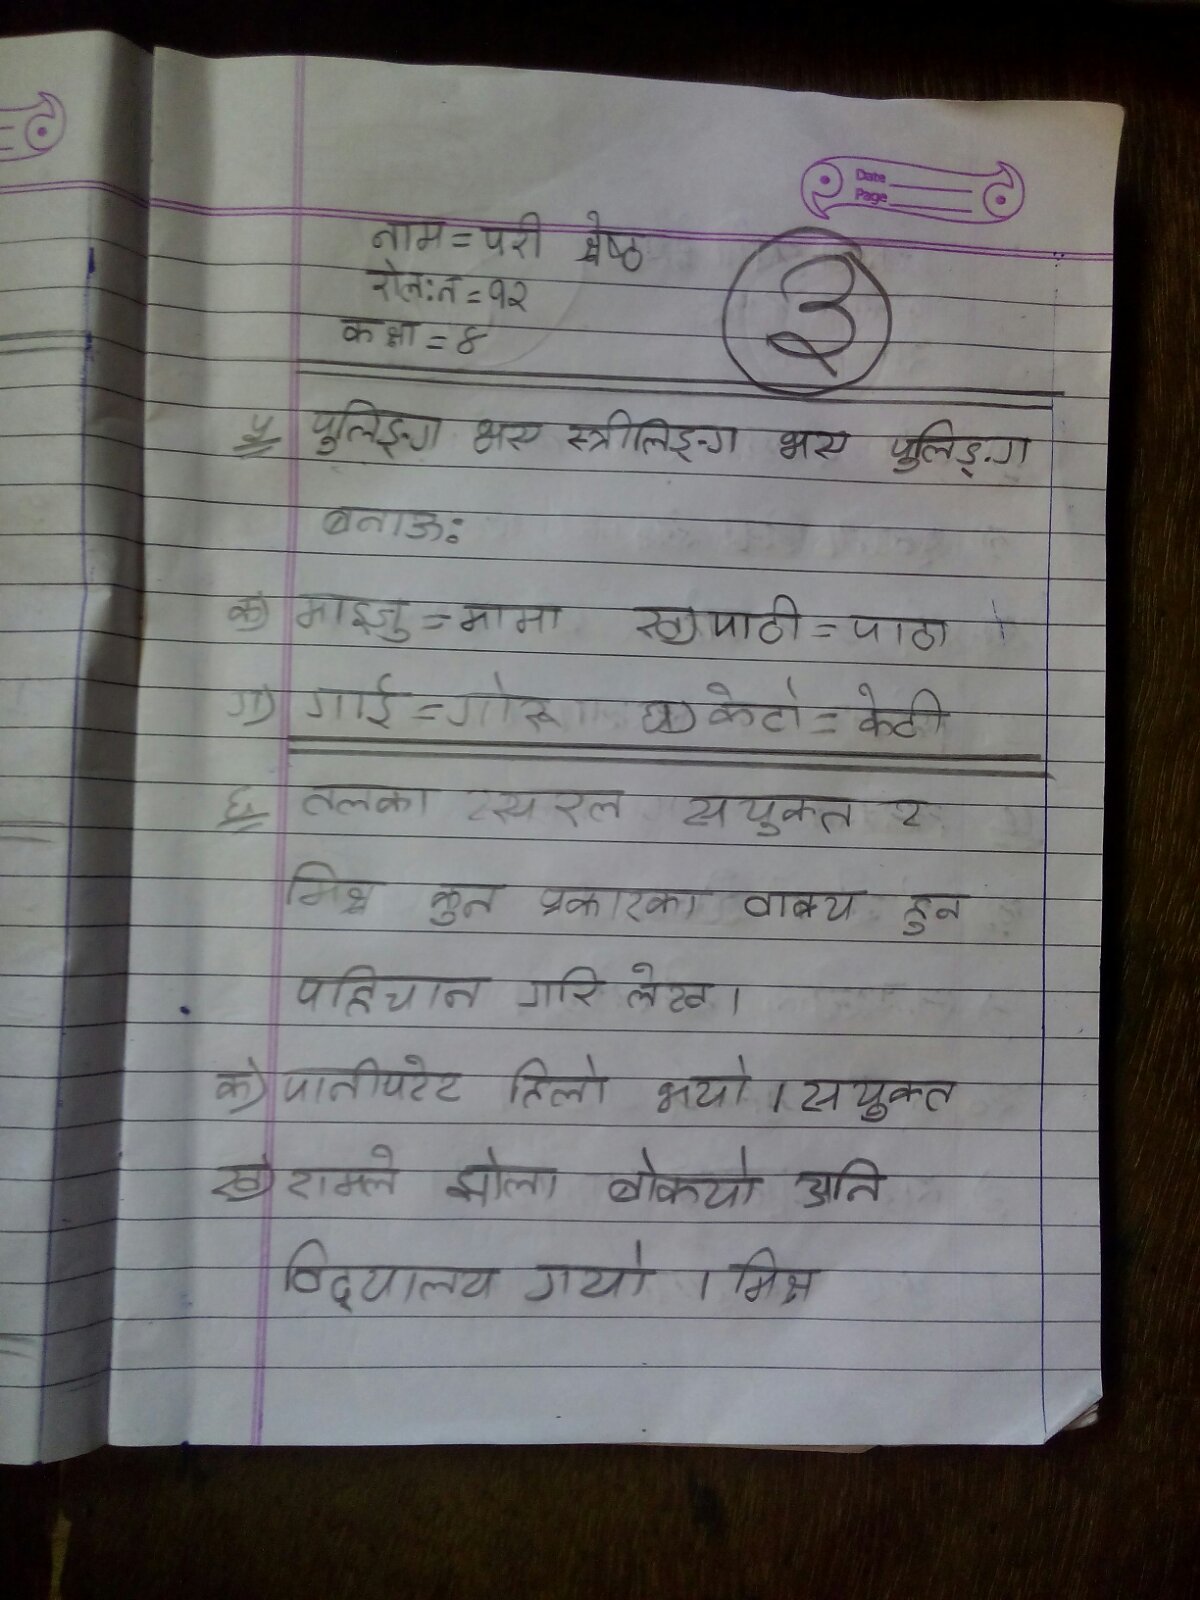 Date
Page
नाम = परी श्रेष्ठ
रोल:न = १२
कक्षा = ४
३
५ पुलिङ्ग भए स्त्रीलिङ्ग भए पुलिङ्ग
बनाऊः
क) माइजु = मामा ख) पाठी = पाठा
ग) गाई = गोरू घ) केटो = केटी
६ तलका सरल सयुक्त र
मिश्र कुन प्रकारका वाक्य हुन
पहिचान गरि लेख।
क) पानीपरेर हिलो भयो । सयुक्त
ख) रामले झोला बोकयो अनि
विद्यालय गयो । मिश्र